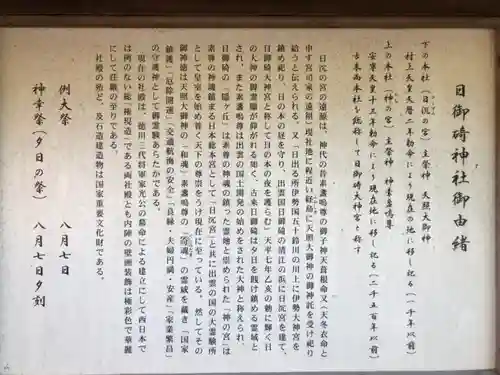 日御碕神社御由緒
下の本社(日沉の宮)主祭神 天照大御神
村上天皇天暦二年勅命により現在の地に移し祀る(一千年前)
上の本社(神の宮)主祭神 神素盞嗚尊
安寧天皇十三年勅命により現在地に移し祀る(二千五百年以前)
古来両本社を総称して日御碕大神宮と称す
日沉の宮の遠源は、神代の昔素盞嗚尊の御子神天葺根命又(天冬衣命と
申す宮司家の遠祖)現社地に程近い経島に天照大御神の御神託を受け祀り
給うと伝えられる。又「日出る所伊勢国五十鈴川の川上に伊勢大神宮を
鎮め祀り、日の本の昼を守り、出雲国日御碕の清江の浜に日沉宮を建て、
日御碕大神宮と称して日の本の夜を護らむ」天平七年乙亥の勅に輝く日
の大神の御霊顕が仰がれる如く、古来日御碕は夕日を餞け鎮める霊域と
され、また素盞嗚尊は出雲の国土開発の始めをされた大神と称えられ、
日御碕の「隠ヶ丘」は素尊の神魂の鎮った霊地と崇められた「神の宮」は
素尊の神魂鎮まる日本総本宮として「日沉宮」と共に出雲の国の大霊験所
として皇室を始め普く天下の尊崇をうけ現在に至っている。然してその
御神徳は天照大御神の「和魂」素盞嗚尊の「奇魂」の霊威を戴き「国家
鎮護」「厄除開運」「交通航海の安全」「良縁・夫婦円満・安産」「家業繁昌」
の守護神として御霊験あらたかである。
現在の社殿は、徳川三代将軍家光公の幕命による建立にして西日本で
は例のない総「権現造」である両社殿とも内陣の壁画装飾は極彩色で華麗
にして荘厳の至りである。
社殿の殆ど、及石造建造物は国家重要文化財である。
例大祭 八月七日
神幸祭(夕日の祭) 八月七日夕刻